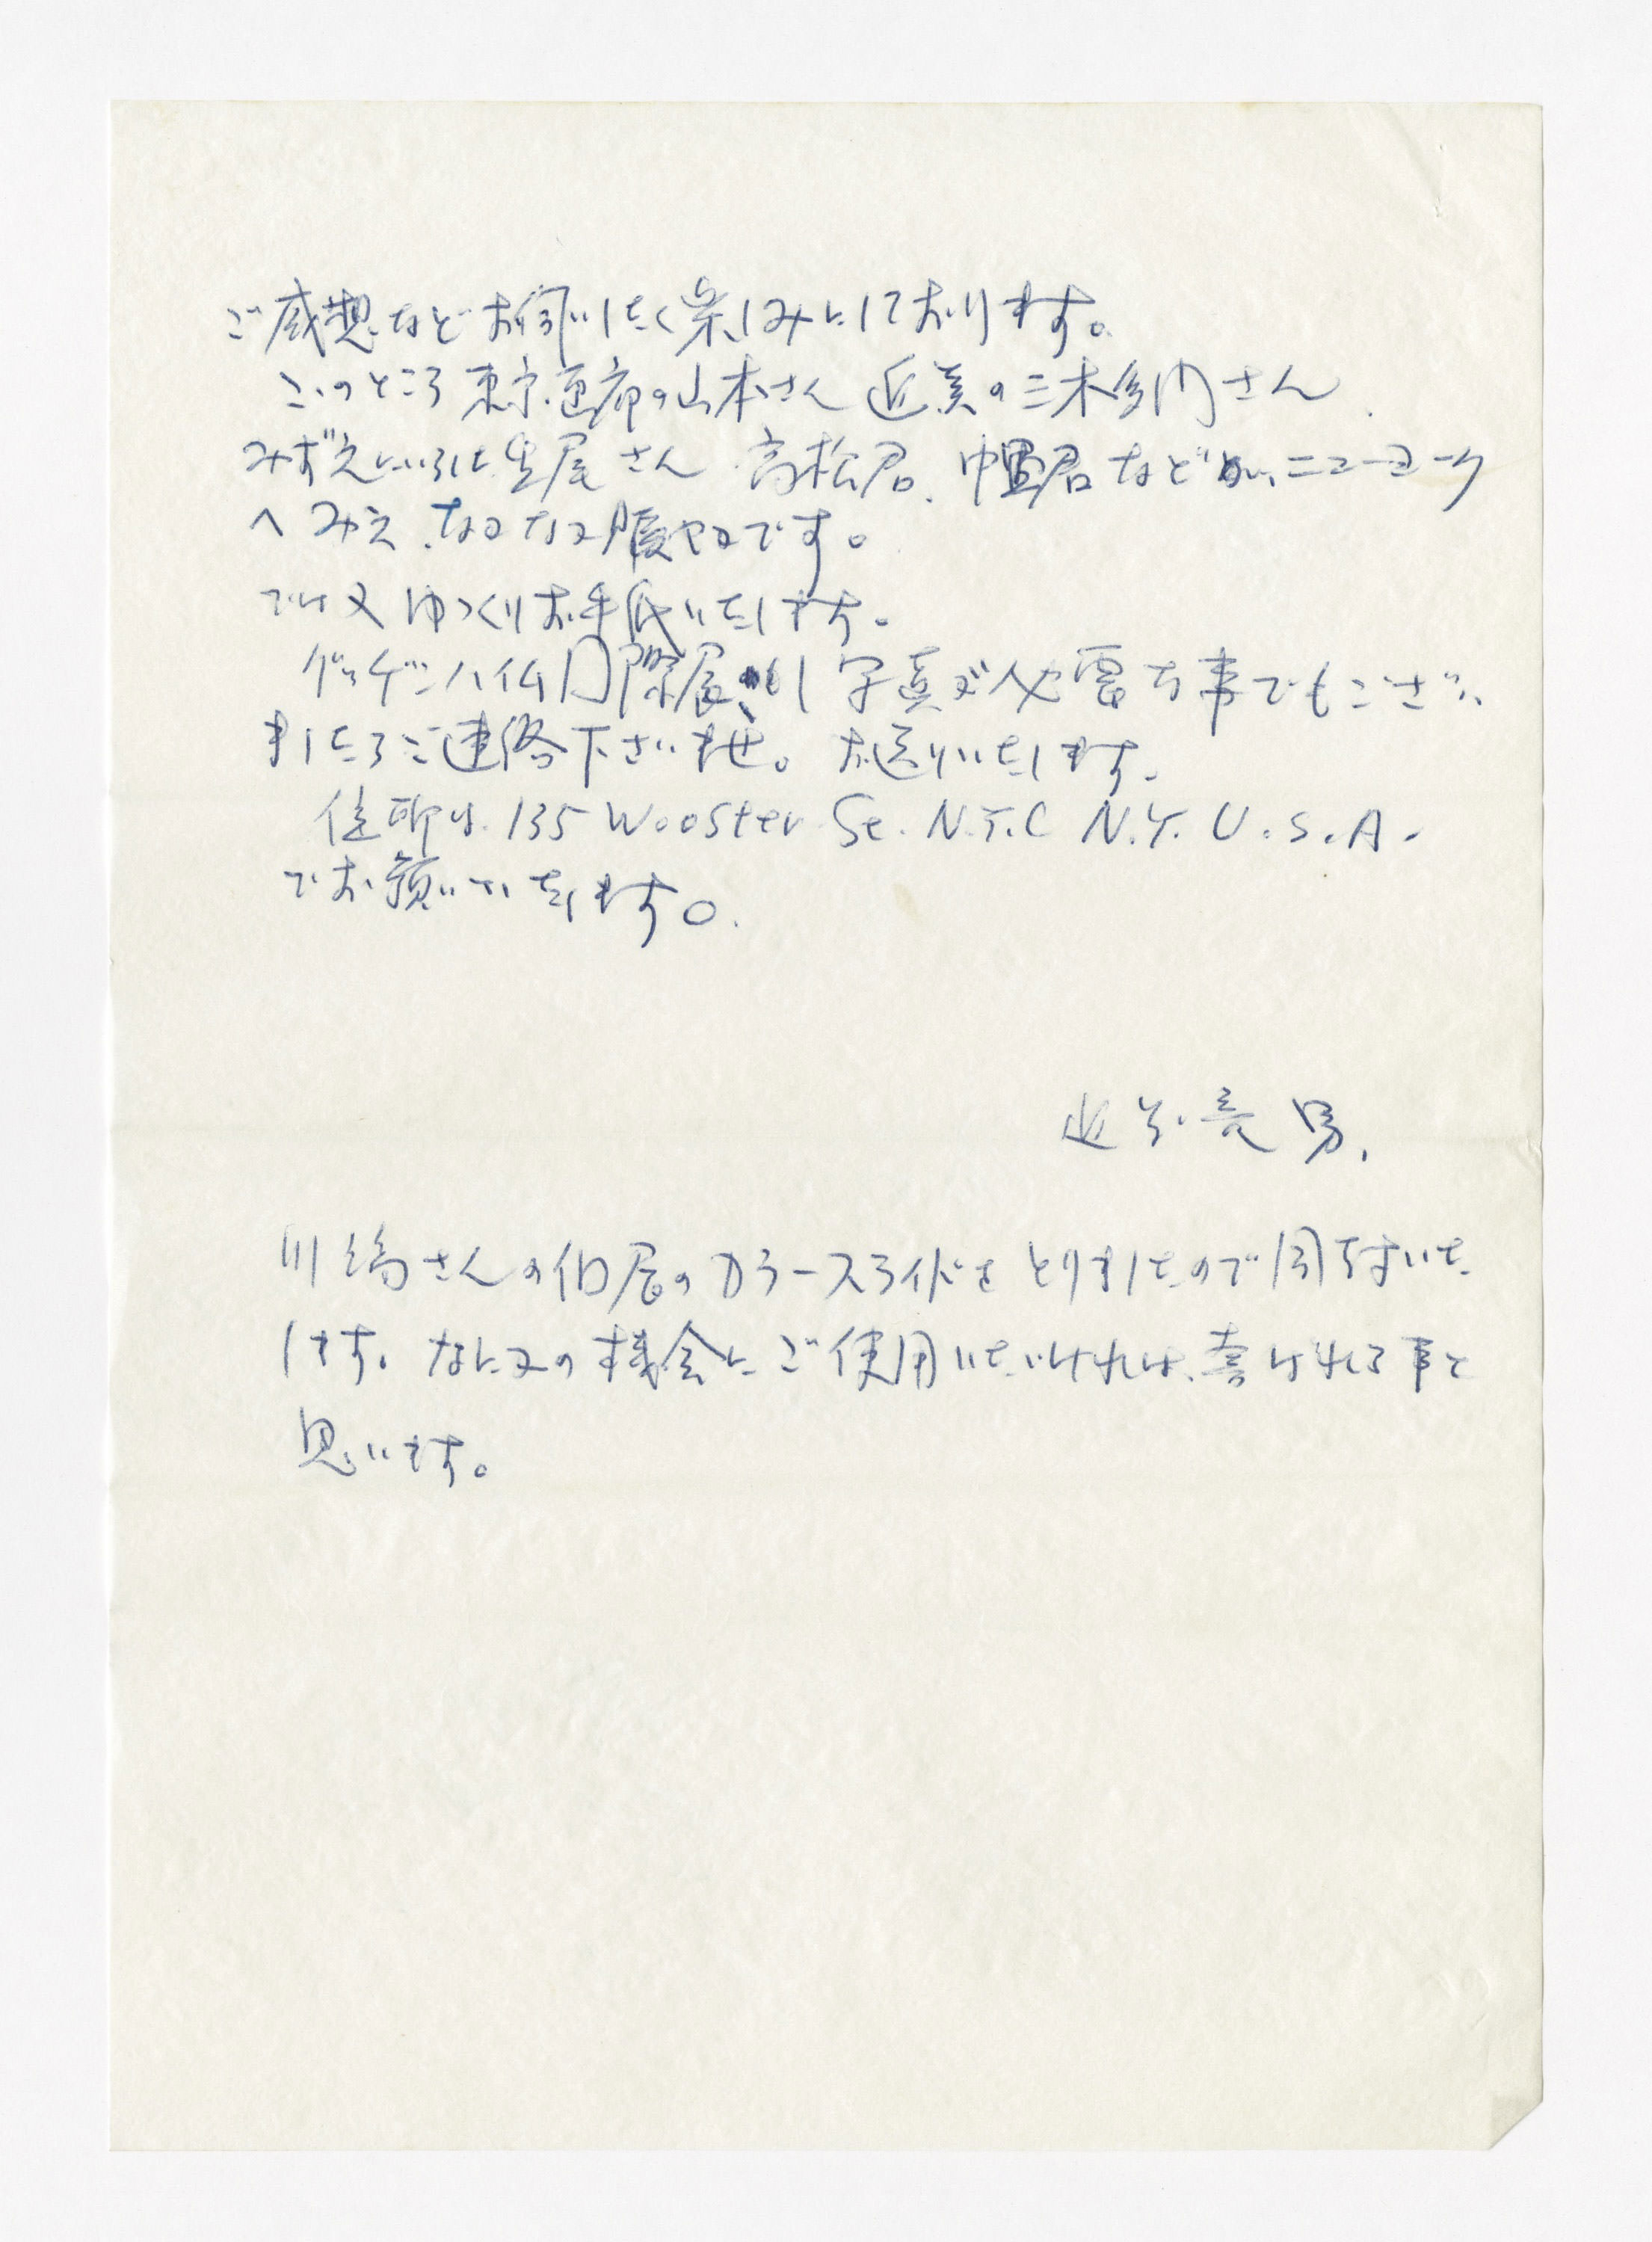 ご感想などお伺いしたく楽しみにしております。
このところ東京画廊の山本さん 近美の三木多聞さん
みずえにいらした生尾さん 高松君、中里君などが、ニューヨーク
へみえ、なかなか賑やかです。
では又ゆっくりお手紙いたします。
グッゲンハイム国際展、もし写真が必要な事でもござい
ましたらご連絡下さいませ。お送りいたします。
住所は 135 Wooster St. N.Y.C N.Y. U.S.A.
でお願いいたします。
近藤竜男
川島さんの個展のカラースライドをとりましたので同封いた
します。なにかの機会にご使用いただければ、喜ばれる事と
思います。